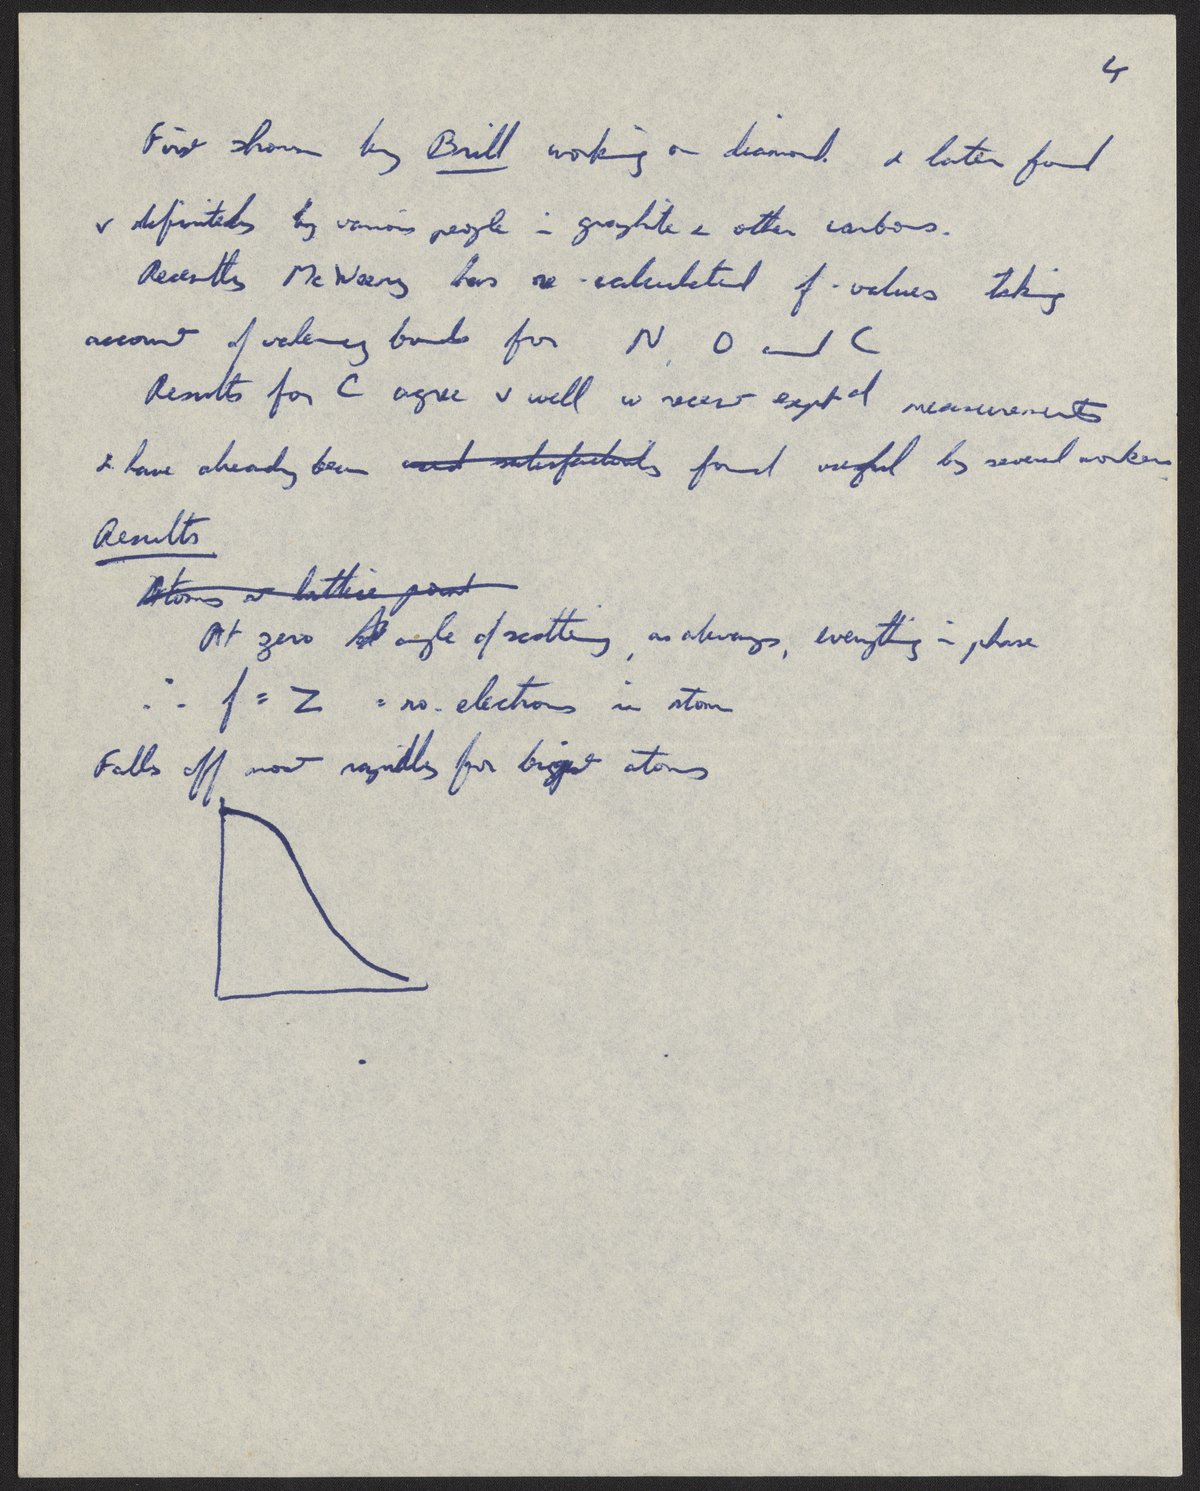 4
First shown by Brill working on diamond. & later found
v definitely by various people in graphite & other carbons.
Recently McWeeny has re-calculated f-values taking
account of valency bonds for N, O and C
Results for C agree v well w recent exptal measurements
& have already been used satisfactorily found useful by several workers.
Results
Atoms at lattice point
At zero angle of scattering, as always, everything in phase
∴ f = Z = no. electrons in atom
Falls off most rapidly for biggest atoms